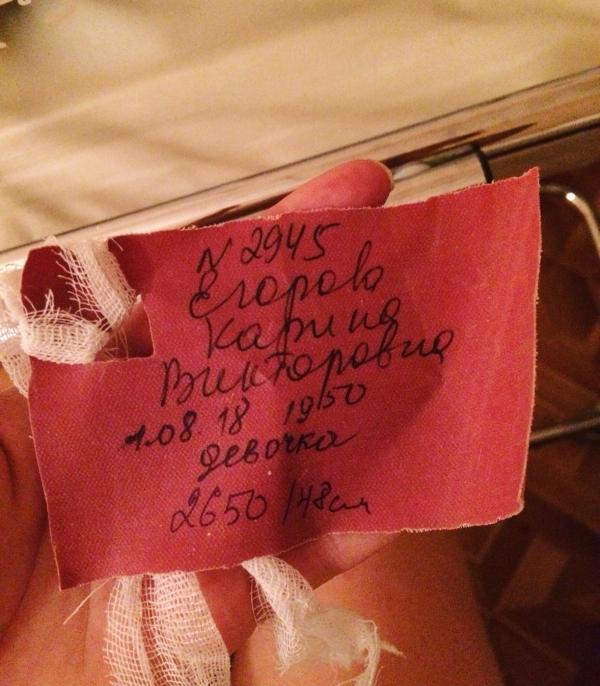 N 2945
Егорова
Карина
Викторовна
1.08.18 19 50
девочка
2650 / 48 см